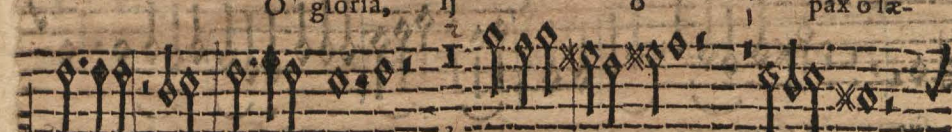 O gloria, ij o pax o læ-